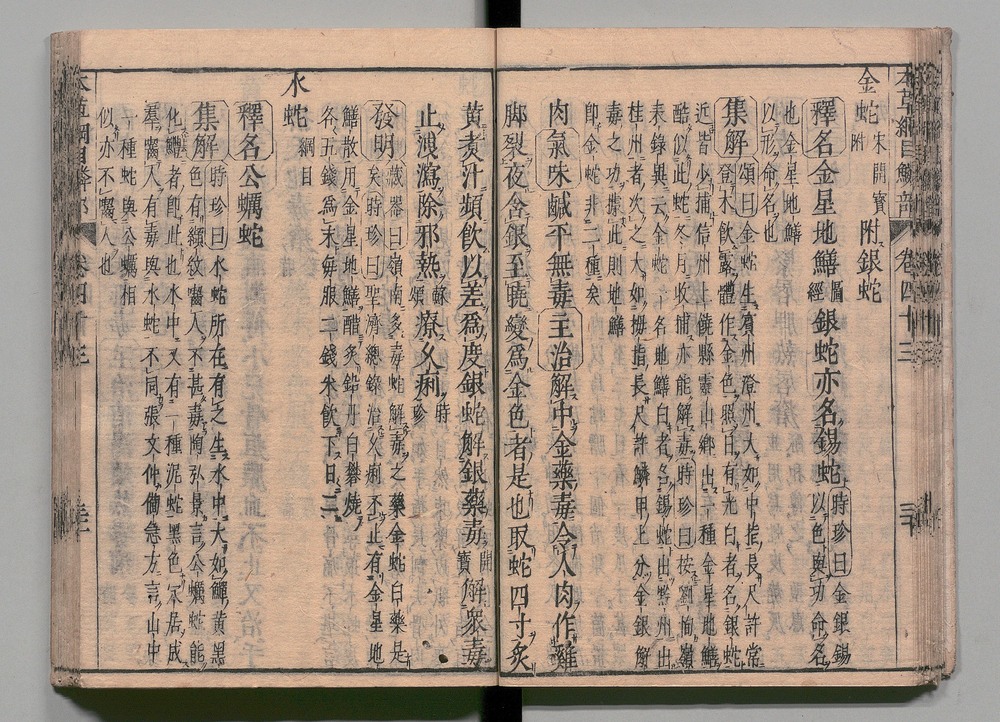 本草綱目鱗部 卷四十三 三十
金蛇宋開寶附 附銀蛇
釋名金星地鱔圖經銀蛇亦名錫蛇時珍曰金銀錫以色與功命名
也金星地鱔
以形命名也
集解頌曰金蛇生賓州澄州大如中指長尺許常
登木飲露體作金色照日有光白者名銀蛇
近皆少捕信州上饒縣靈山鄉出一種金星地鱔
酷似此蛇冬月收捕亦能解毒時珍曰按劉恂嶺
表錄異云金蛇一名地鱔白者名錫蛇出黔州出
桂州者次之大如拇指長尺許鱗甲上分金銀解
毒之功據此則地鱔
卽金蛇非二種矣
肉氣味鹹平無毒主治解中金藥毒令人肉作雞
脚裂夜含銀至曉變爲金色者是也取蛇四寸炙
黃煮汁頻飲以差爲度銀蛇解銀藥毒開寶解衆毒
止洩瀉除邪熱蘇頌療久痢時珍
發明藏器曰嶺南多毒蛇解毒之藥金蛇白藥是
矣時珍曰聖濟總錄治久痢不止有金星地
鱔散用金星地鱔醋炙鉛丹白礬燒
各五錢爲末每服二錢米飲下日二
水蛇綱目
釋名公蠣蛇
集解時珍曰水蛇所在有之生水中大如鱓黃黑
色有纈紋嚙人不甚毒陶弘景言公蠣蛇能
化鱧者卽此也水中又有一種泥蛇黑色穴居成
羣嚙人有毒與水蛇不同張文仲備急方言山中
一種蛇與公蠣相
似亦不嚙人也
本草綱目鱗部 卷四十三